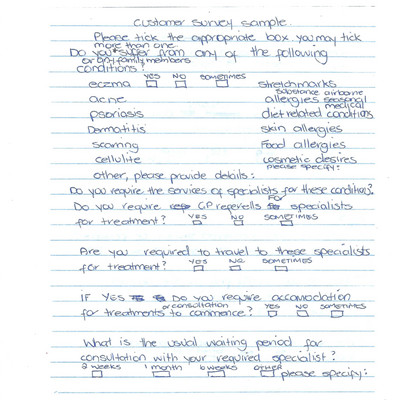 customer survey sample.
Please tick the appropriate box. you may tick
more than one.
Do you suffer from any of the following
or any family members
conditions?
YES NO SOMETIMES
eczema stretchmarks
substance airborne
acne allergies seasonal
medical
psoriasis diet related conditions
Dermatitis skin allergies
scarring Food allergies
cellulite cosmetic desires
please specify:
other, please provide details:
Do you require the services of specialists for these conditions?
For
Do you require GP referells specialists
for treatment? YES NO SOMETIMES
Are you required to travel to these specialists
for treatment? YES NO SOMETIMES
IF YES Do you require accomodation
or consultation
for treatments to commence? YES NO SOMETIMES
What is the usual waiting period for
consultation with your required specialist?
2 weeks 1 month 6 weeks OTHER
please specify: